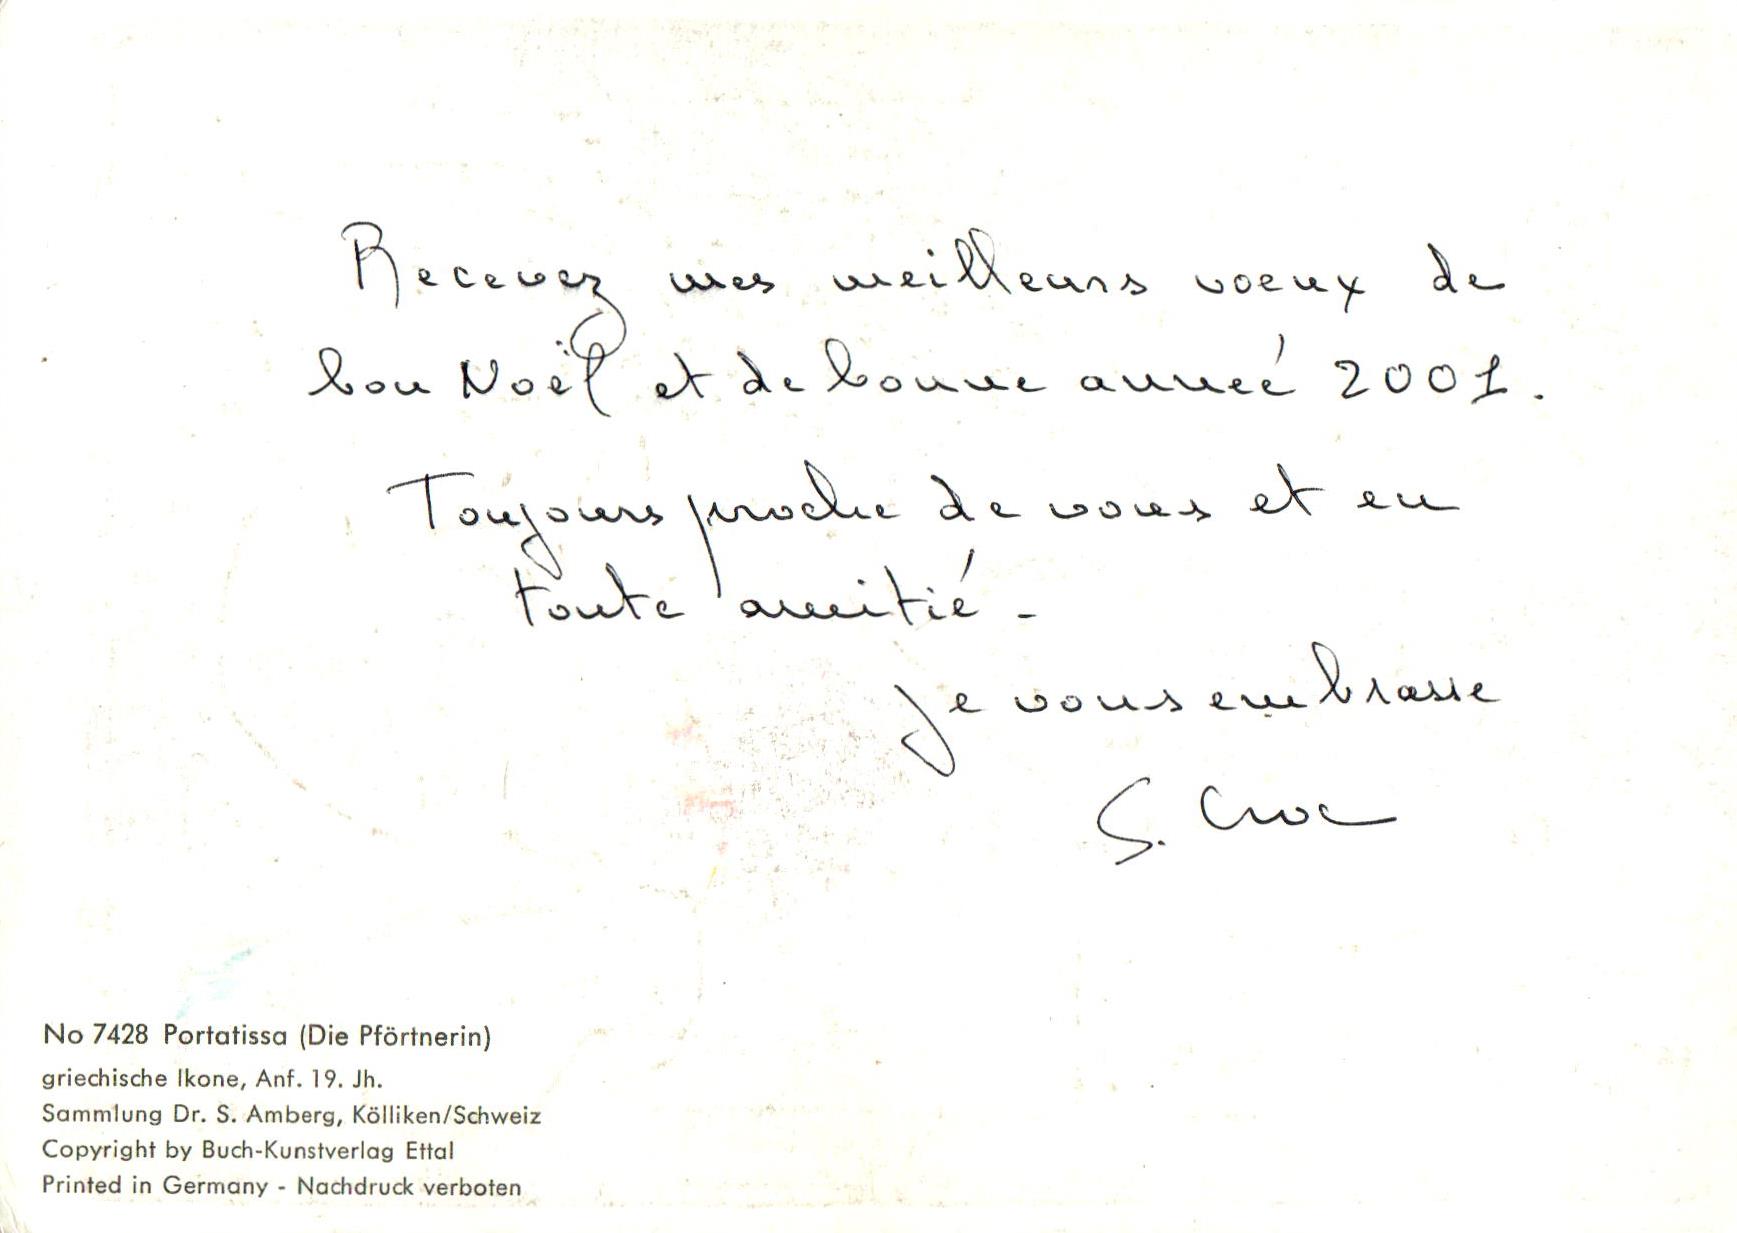 Recevez mes meilleurs voeux de
bon Noël et de bonne année 2001.
Toujours proche de vous et en
toute amitié -
Je vous embrasse
S. Croc
No 7428 Portatissa (Die Pförtnerin)
griechische Ikone, Anf. 19. Jh.
Sammlung Dr. S. Amberg, Kölliken/Schweiz
Copyright by Buch-Kunstverlag Ettal
Printed in Germany - Nachdruck verboten